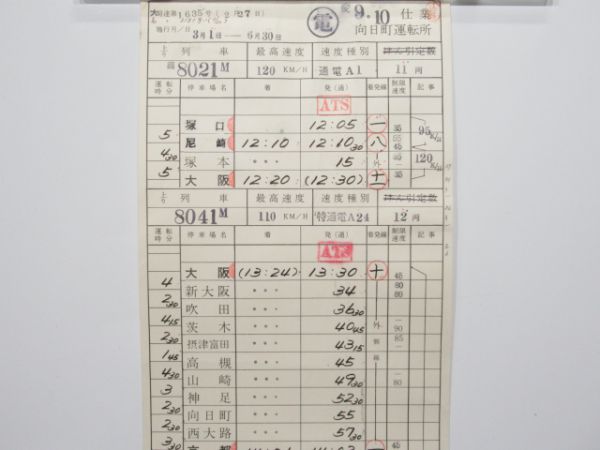 大運達第1635号(2月27日)
電 変 9.10 仕業
施行月/日 3月1日―6月30日 向日町運転所
上り 列車 最高速度 速度種別 けん引定数
8021M 120 KM/H 通電A1 11両
運転時分 停車場名 着 発(通) 着発線 制限速度 記事
ATS
塚口 12:05 一 35
5 尼崎 12:10 12:10 30 八 45
95 km/h
4 30 塚本 ・・・ 15 外
120 km/h
5 大阪 12:20 (12:30) 十一 35
上り 列車 最高速度 速度種別 けん引定数
8041M 110 KM/H 特通電A24 12両
運転時分 停車場名 着 発(通) 着発線 制限速度 記事
ATS
大阪 (13:24) 13:30 十 45
4 新大阪 ・・・ 34 80
2 30 吹田 ・・・ 36 30
4 15 茨木 ・・・ 40 45 外 90
2 30 摂津富田 ・・・ 43 15 側 85
1 45 高槻 ・・・ 45 線
4 30 山崎 ・・・ 49 30 80
3 神足 ・・・ 52 30
2 30 向日町 ・・・ 55
2 30 西大路 ・・・ 57 30
3 30 京都